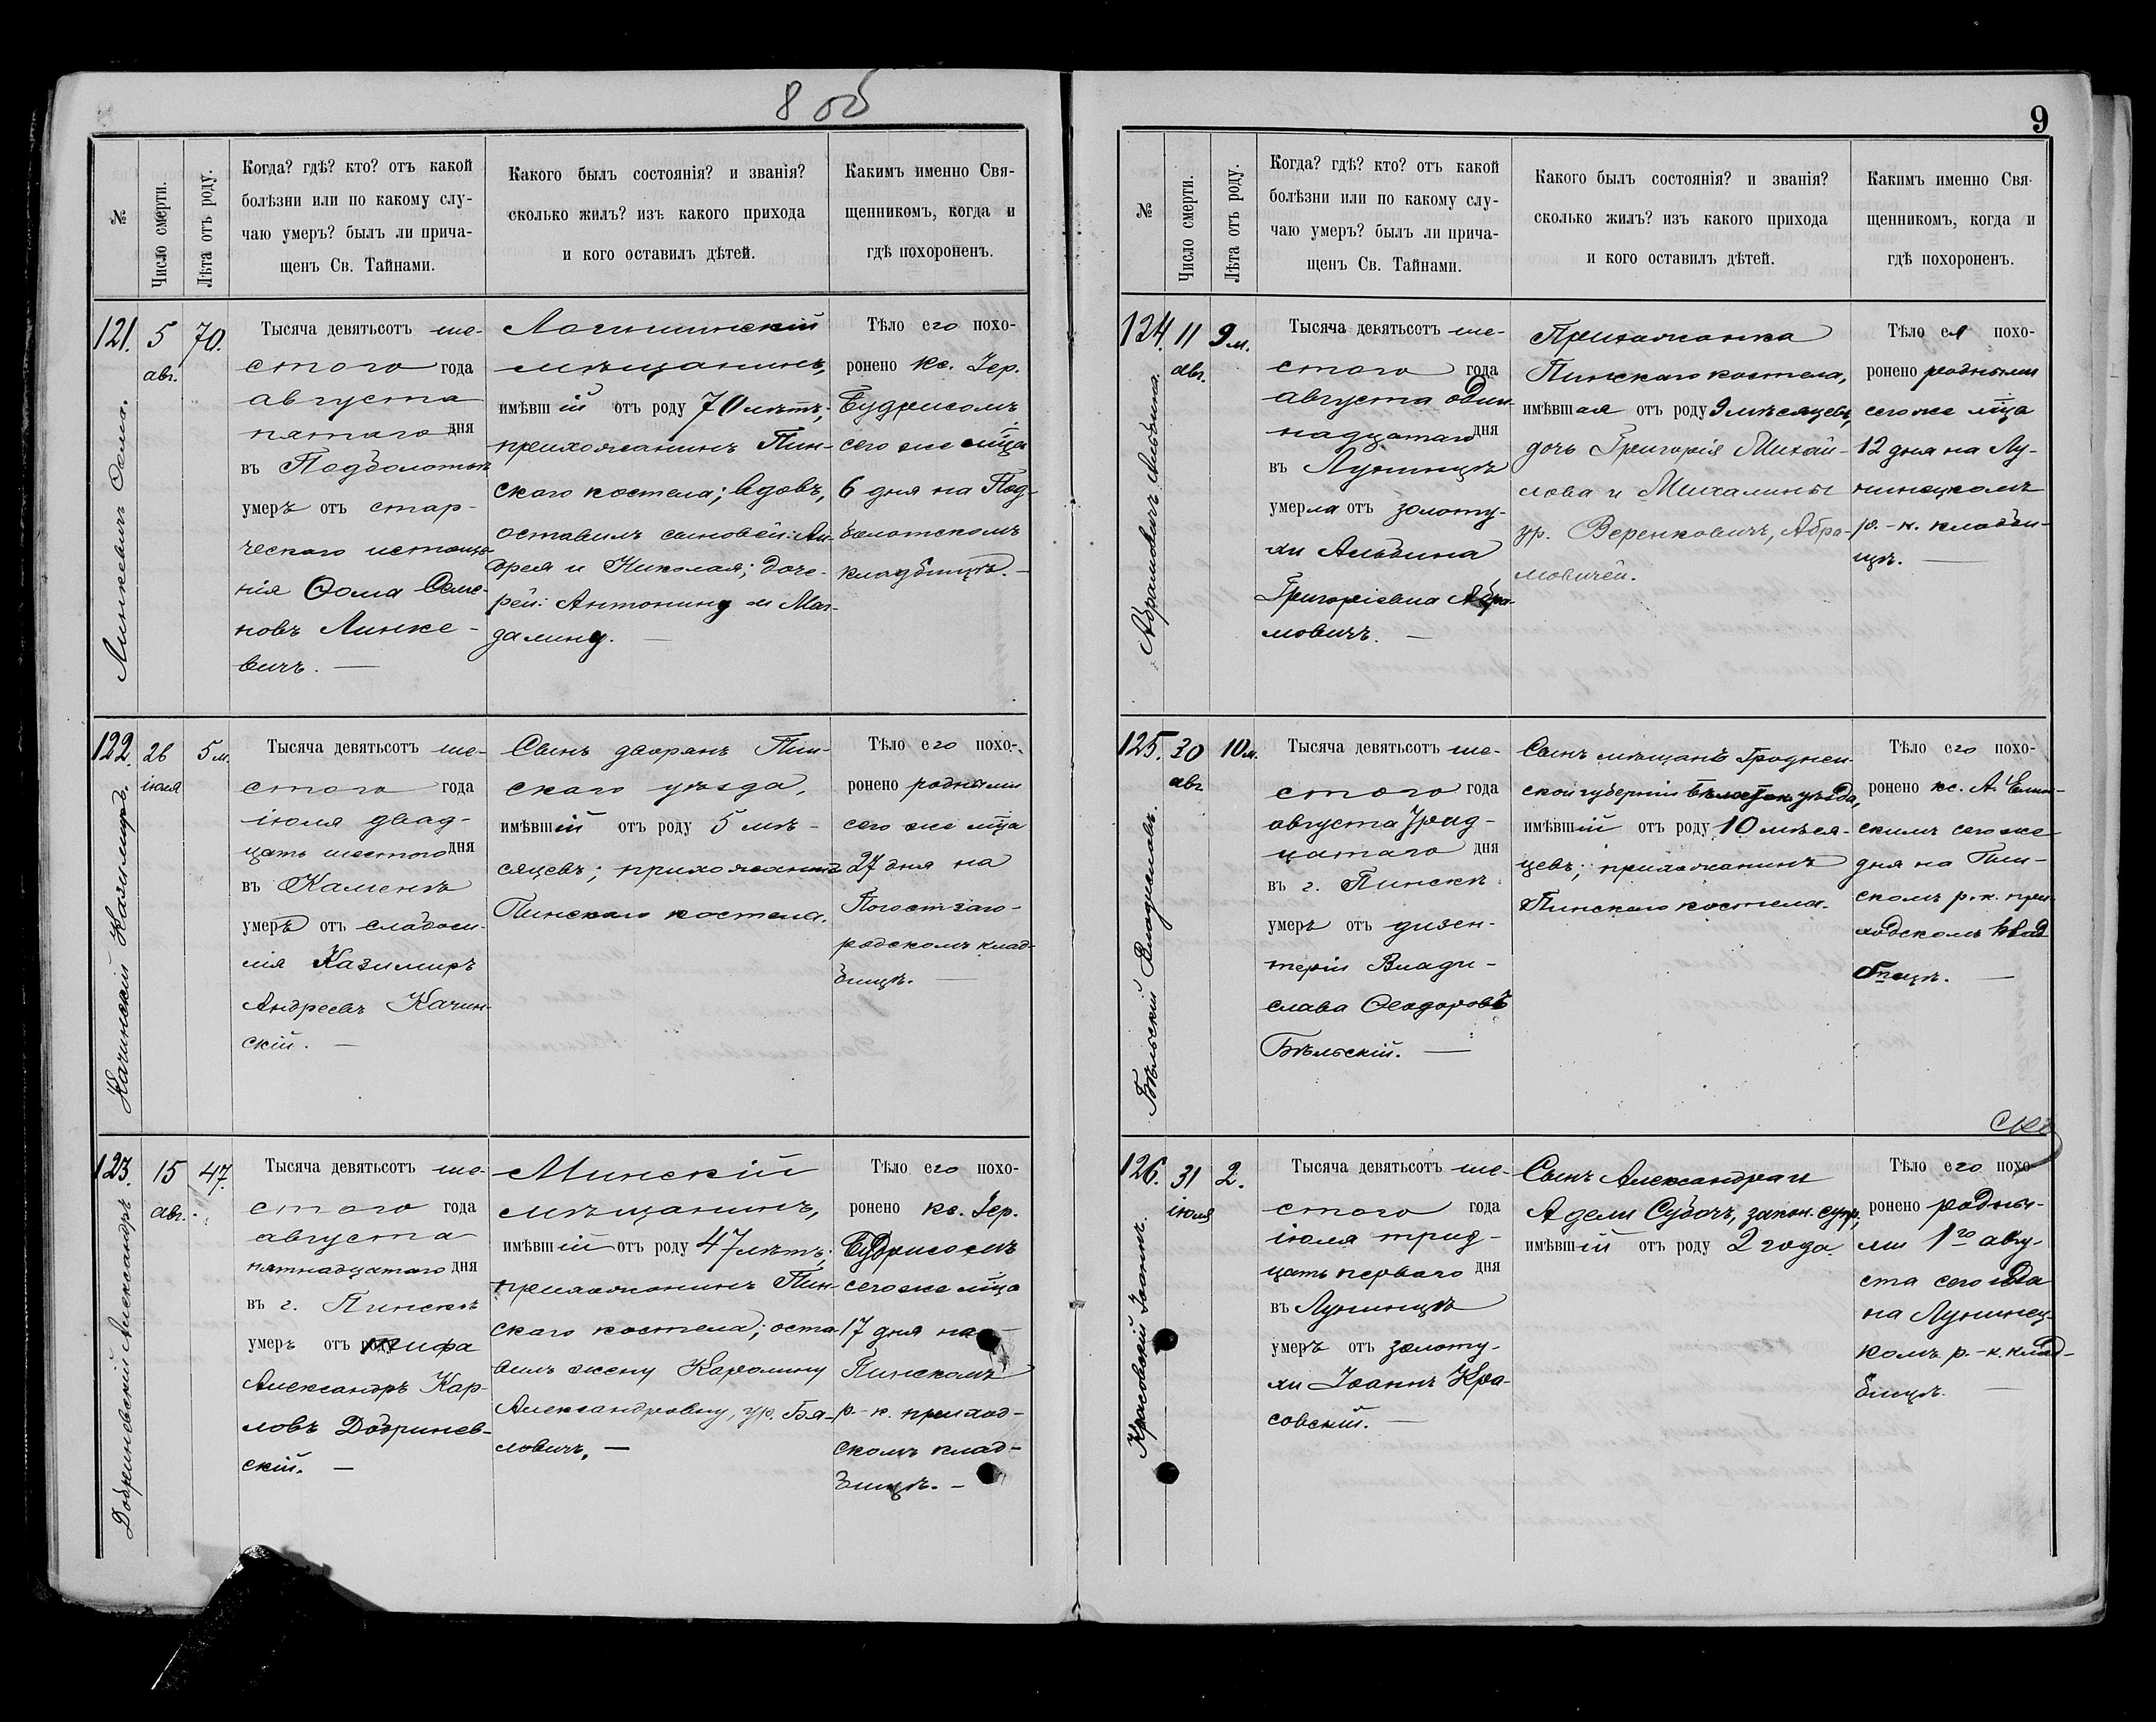 8 об
№
Число смерти.
Лѣта отъ роду.
Когда? гдѣ? кто? отъ какой
болѣзни или по какому слу-
чаю умеръ? былъ ли прича-
щенъ Св. Тайнами.
Какого былъ состоянія? и званія?
сколько жилъ? изъ какого прихода
и кого оставилъ дѣтей.
Какимъ именно Свя-
щенникомъ, когда и
гдѣ похороненъ.
121.
Линкевичъ Ѳома.
5
авг.
70.
Тысяча девятьсотъ ше-
стого года
августа
пятаго дня
въ Подболотьѣ
умеръ отъ стар-
ческаго истоще-
нія Ѳома Семе-
новъ Линке-
вичъ. —
Логишинскій
мѣщанинъ,
имѣвшій отъ роду 70 лѣтъ;
прихожанинъ Пин-
скаго костела; вдовъ,
оставилъ сыновей: Ан-
дрея и Николая; доче-
рей: Антонину и Маг-
далину. —
Тѣло его похо-
ронено кс. Іер.
Будрисомъ
сего же мѣца
6 дня на Под-
болотскомъ
кладбищѣ. —
122.
Качинскій Казимиръ.
26
іюля
5 м.
Тысяча девятьсотъ ше-
стого года
іюля двад-
цать шестого дня
въ Каменѣ
умеръ отъ слабоси-
лія Казимиръ
Андреевъ Качин-
скій. —
Сынъ дворянъ Пин-
скаго уѣзда,
имѣвшій отъ роду 5 мѣ-
сяцевъ; прихожанинъ
Пинскаго костела.
Тѣло его похо-
ронено родными
сего же мѣца
27 дня на
Погостъ-заго-
родскомъ клад-
бищѣ. —
123.
Добриневскій Александръ
15
авг.
47.
Тысяча девятьсотъ ше-
стого года
августа
пятнадцатаго дня
въ г. Пинскѣ
умеръ отъ тифа
Александръ Кар-
ловъ Добринев-
скій. —
Минскій
мѣщанинъ,
имѣвшій отъ роду 47 лѣтъ;
прихожанинъ Пин-
скаго костела; оста-
вилъ жену Каролину
Александровну, ур. Бя-
ловичъ. —
Тѣло его похо-
ронено кс. Іер.
Будрисомъ
сего же мѣца
17 дня на
Пинскомъ
р.-к. приход-
скомъ клад-
бищѣ. —
9
№
Число смерти.
Лѣта отъ роду.
Когда? гдѣ? кто? отъ какой
болѣзни или по какому слу-
чаю умеръ? былъ ли прича-
щенъ Св. Тайнами.
Какого былъ состоянія? и званія?
сколько жилъ? изъ какого прихода
и кого оставилъ дѣтей.
Какимъ именно Свя-
щенникомъ, когда и
гдѣ похороненъ.
124.
Абрамовичъ Альбина.
11
авг.
9 м.
Тысяча девятьсотъ ше-
стого года
августа один-
надцатаго дня
въ Лунинцѣ
умерла отъ золоту-
хи Альбина
Григоріевна Абра-
мовичъ. —
Прихожанка
Пинскаго костела,
имѣвшая отъ роду 9 мѣсяцевъ,
дочь Григорія Михай-
лова и Михалины
ур. Веренковичъ, Абра-
мовичей.
Тѣло ея похо-
ронено родными
сего же мѣца
12 дня на Лу-
нинецкомъ
р.-к. кладби-
щѣ. —
125.
Бѣльскій Владиславъ.
30
авг
10 м.
Тысяча девятьсотъ ше-
стого года
августа трид-
цатаго дня
въ г. Пинскѣ
умеръ отъ дизен-
теріи Влади-
славъ Ѳеодоровъ
Бѣльскій. —
Сынъ мѣщанъ Гроднен-
ской губерніи Бѣлосток. уѣзда,
имѣвшій отъ роду 10 мѣся-
цевъ; прихожанинъ
Пинскаго костела.
Тѣло его похо-
ронено кс. А.
скимъ сего же
дня на Пин-
скомъ р.-к. при-
ходскомъ клад
бищѣ. —
126.
Красовскій Іоаннъ.
31
іюля
2.
Тысяча девятьсотъ ше-
стого года
іюля трид-
цать перваго дня
въ Лунинцѣ
умеръ отъ золоту-
хи Іоаннъ Кра-
совскій. —
Сынъ Александра и
Адели Субочъ, закон. супр.,
имѣвшій отъ роду 2 года.
Тѣло его похо-
ронено родны-
ми 1го авгу-
ста сего года
на Лунинец-
комъ р.-к. клад-
бищѣ. —